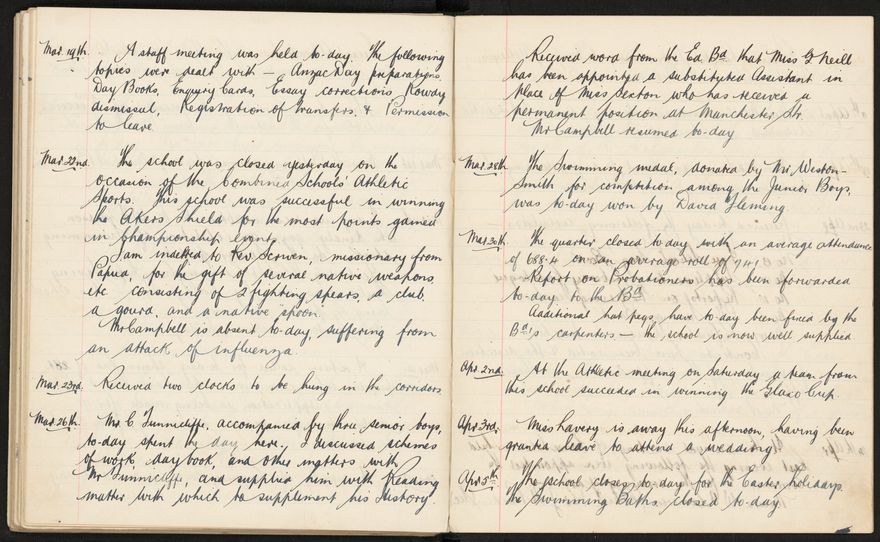 Mar. 19th. A staff meeting was held to-day. The following
topics were dealt with — Anzac Day preparations,
Day Books, Enquiry Cards, Essay corrections, Rowdy
dismissal, Registration of Transfers, & Permission
to leave.
Mar. 22nd. The school was closed yesterday on the
occasion of the Combined Schools' Athletic
Sports. This school was successful in winning
the Akers Shield for the most points gained
in Championship Events.
I am indebted to Rev Scriven, missionary from
Papua, for the gift of several native weapons
etc consisting of 2 fighting spears, a club,
a gourd, and a native spoon.
Mr Campbell is absent to-day, suffering from
an attack of influenza.
Mar. 23rd. Received two clocks to be hung in the corridors.
Mar. 26th. Mr. C Tunnicliffe, accompanied by three senior boys,
to-day spent the day here. I discussed schemes
of work, day book, and other matters with
Mr Tunnicliffe, and supplied him with Reading
matter with which to supplement his History.
Received word from the Ed. Bd. that Miss G Neill
has been appointed a substituted Assistant in
place of Miss Sexton who has received a
permanent position at Manchester St.
Mr Campbell resumed to-day
Mar. 28th. The Swimming medal, donated by Mr. Weston-
Smith for competition among the Junior Boys,
was to-day won by David Fleming.
Mar. 30th. The quarter closed to day with an average attendance
of 688.4 on an average roll of 741.
Report on Probationers has been forwarded
to-day to the Bd.
Additional hat pegs, have to-day been fixed by the
Bd's carpenters — the school is now well supplied.
Apr. 2nd. At the Athletic meeting on Saturday a team from
this school succeeded in winning the Glaxo Cup.
Apr. 3rd. Miss Lavery is away this afternoon, having been
granted leave to attend a wedding.
Apr. 5th. The school closes to-day for the Easter holidays.
The Swimming Baths closed to-day.